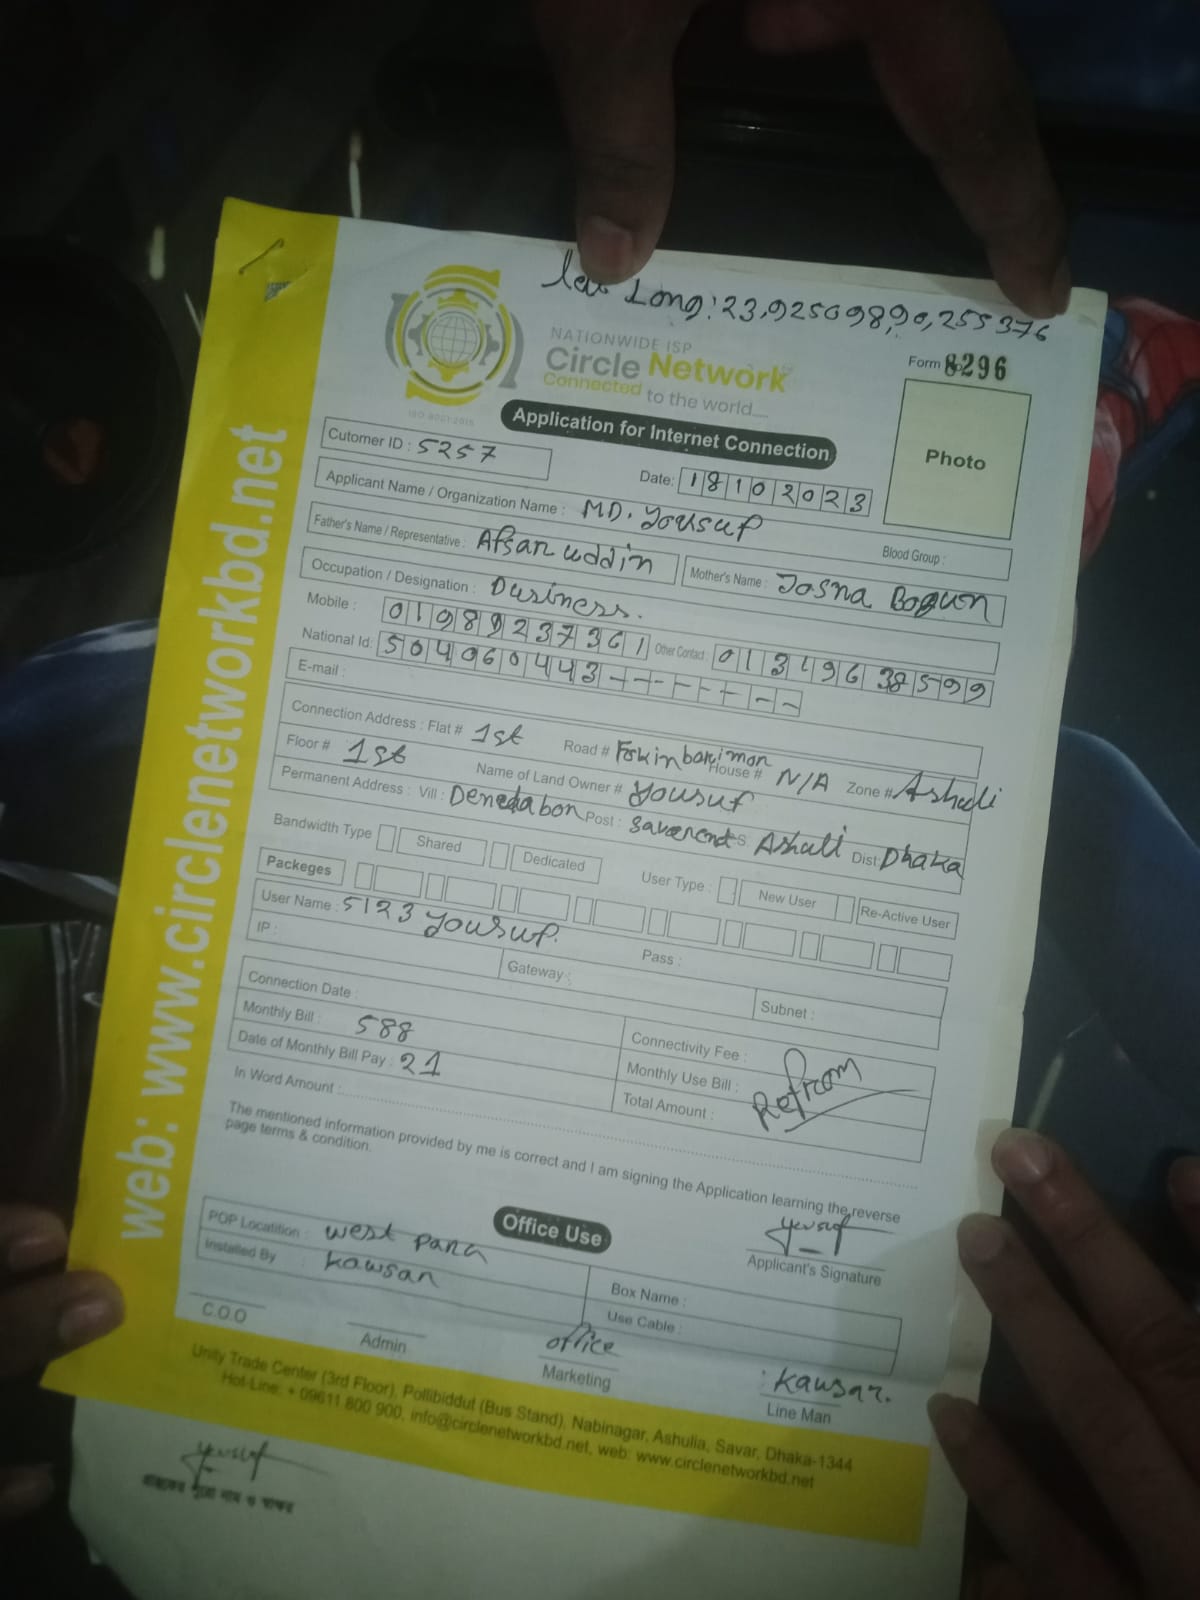 Lat Long: 23,9250989,90,255376
NATIONWIDE ISP
Circle Network
Connected to the world....
ISO 9001:2015
Form 8296
Application for Internet Connection
Photo
Cutomer ID : 5257
Date: 18102023
Applicant Name / Organization Name : MD. Yousuf
Blood Group :
Father's Name / Representative : Afsar uddin
Mother's Name : Josna Begum
Occupation / Designation : Business.
Mobile : 01989237361
Other Contact : 01319638599
National Id: 5040960443-------
E-mail :
Connection Address : Flat # 1st Road # Fokinbarimor House # N/A Zone # Ashuli
Floor # 1st Name of Land Owner # Yousuf
Permanent Address : Vill : Denedabon Post : Savarcnt S: Ashuli Dist: Dhaka
Bandwidth Type Shared Dedicated User Type : New User Re-Active User
Packeges
User Name : 5123 Yousuf. Pass :
IP : Gateway : Subnet :
Connection Date :
Connectivity Fee :
Monthly Bill : 588
Monthly Use Bill :
Date of Monthly Bill Pay : 21
Total Amount :
Refrom
In Word Amount :
The mentioned information provided by me is correct and I am signing the Application learning the reverse
page terms & condition.
Yousuf
Applicant's Signature
Office Use
POP Locatition : west para
Box Name :
Installed By : Kawsar
Use Cable :
C.O.O
Admin
office
Marketing
: Kawsar.
Line Man
Unity Trade Center (3rd Floor), Pollibiddut (Bus Stand), Nabinagar, Ashulia, Savar, Dhaka-1344
Hot-Line: + 09611 800 900, info@circlenetworkbd.net, web: www.circlenetworkbd.net
Yousuf
গ্রাহকের পুরো নাম ও স্বাক্ষর
web: www.circlenetworkbd.net